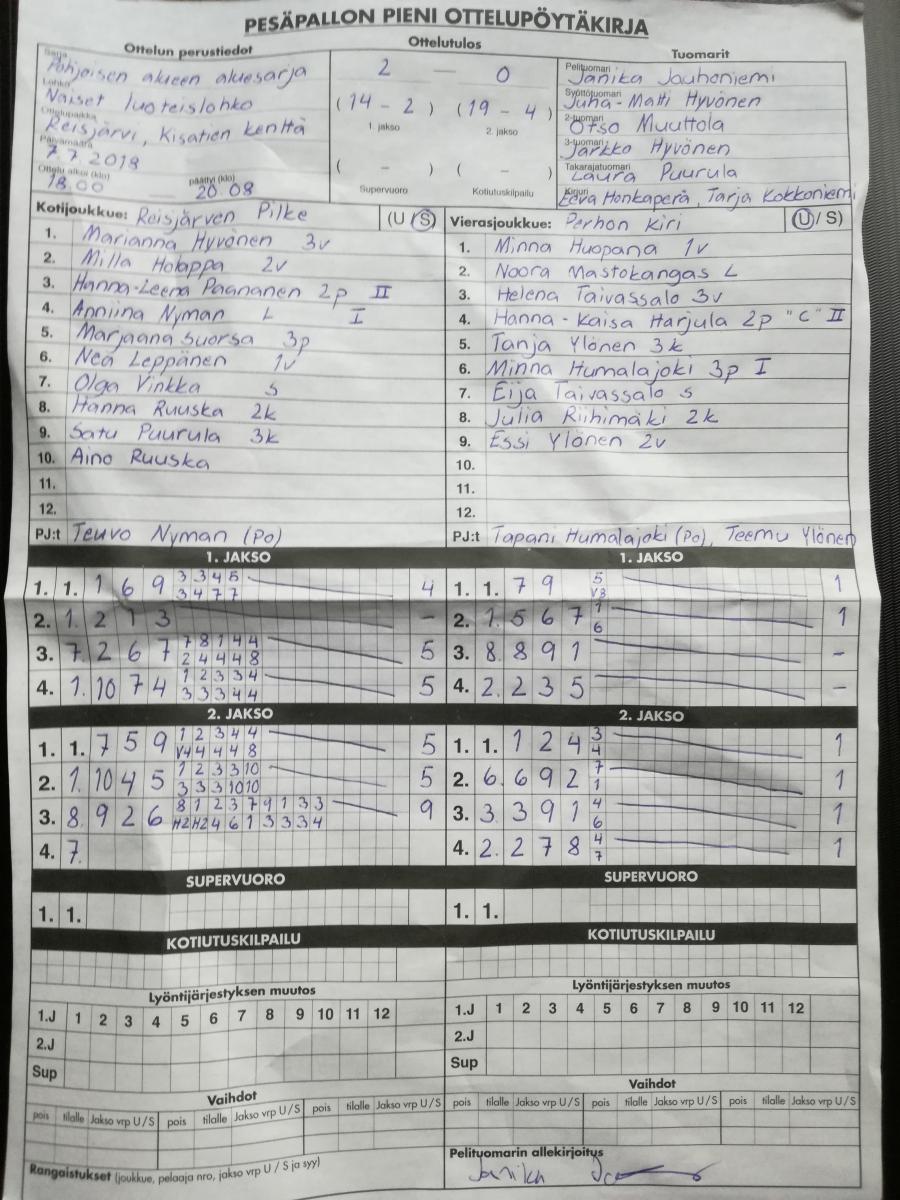 PESÄPALLON PIENI OTTELUPÖYTÄKIRJA
Ottelun perustiedot
Sarja
Pohjoisen alueen aluesarja
Lohko
Naiset luoteislohko
Ottelupaikka
Reisjärvi, Kisatien kenttä
Päivämäärä
7.7.2018
Ottelu alkoi (klo) päättyi (klo)
18.00 20 08
Ottelutulos
2 — 0
(14 - 2) (19 - 4)
1. jakso 2. jakso
( - ) ( - )
Supervuoro Kotiutuskilpailu
Tuomarit
Pelituomari
Janika Jauhoniemi
Syöttötuomari
Juha-Matti Hyvönen
2-tuomari
Otso Muuttola
3-tuomari
Jarkko Hyvönen
Takarajatuomari
Laura Puurula
Kirjuri
Eeva Honkaperä, Tarja Kokkoniemi
Kotijoukkue: Reisjärven Pilke (U / S)
1. Marianna Hyvönen 3v
2. Milla Holappa 2v
3. Hanna-Leena Paananen 2p II
4. Anniina Nyman L I
5. Marjaana Suorsa 3p
6. Nea Leppänen 1v
7. Olga Vinkka S
8. Hanna Ruuska 2k
9. Satu Puurula 3k
10. Aino Ruuska
11.
12.
PJ:t Teuvo Nyman (Po)
Vierasjoukkue: Perhon Kiri (U / S)
1. Minna Huopana 1v
2. Noora Mastokangas L
3. Helena Taivassalo 3v
4. Hanna-Kaisa Harjula 2p "C" II
5. Tanja Ylönen 3k
6. Minna Humalajoki 3p I
7. Eija Taivassalo S
8. Julia Riihimäki 2k
9. Essi Ylönen 2v
10.
11.
12.
PJ:t Tapani Humalajoki (Po), Teemu Ylönen
1. JAKSO
1. 1. 1 6 9 3 3 4 5 4
3 4 7 7
2. 1. 2 1 3 -
3. 7. 2 6 7 7 8 1 4 4 5
2 4 4 4 8
4. 1. 10 7 4 1 2 3 3 4 5
3 3 3 4 4
1. JAKSO
1. 1. 7 9 5 1
V3
2. 1. 5 6 7 1 1
6
3. 8. 8 9 1 -
4. 2. 2 3 5 -
2. JAKSO
1. 1. 7 5 9 1 2 3 4 4 5
V4 4 4 4 8
2. 1. 10 4 5 1 2 3 3 10 5
3 3 3 10 10
3. 8. 9 2 6 8 1 2 3 7 9 1 3 3 9
H2 H2 4 6 1 3 3 3 4
4. 7.
2. JAKSO
1. 1. 1 2 4 3 1
4
2. 6. 6 9 2 7 1
1
3. 3. 3 9 1 4 1
6
4. 2. 2 7 8 4 1
7
SUPERVUORO
1. 1.
SUPERVUORO
1. 1.
KOTIUTUSKILPAILU
KOTIUTUSKILPAILU
Lyöntijärjestyksen muutos
1.J 1 2 3 4 5 6 7 8 9 10 11 12
2.J
Sup
Lyöntijärjestyksen muutos
1.J 1 2 3 4 5 6 7 8 9 10 11 12
2.J
Sup
Vaihdot
pois tilalle Jakso vrp U / S pois tilalle Jakso vrp U / S pois tilalle Jakso vrp U / S
Vaihdot
pois tilalle Jakso vrp U / S pois tilalle Jakso vrp U / S pois tilalle Jakso vrp U / S
Rangaistukset (joukkue, pelaaja nro, jakso vrp U / S ja syy)
Pelituomarin allekirjoitus
Janika